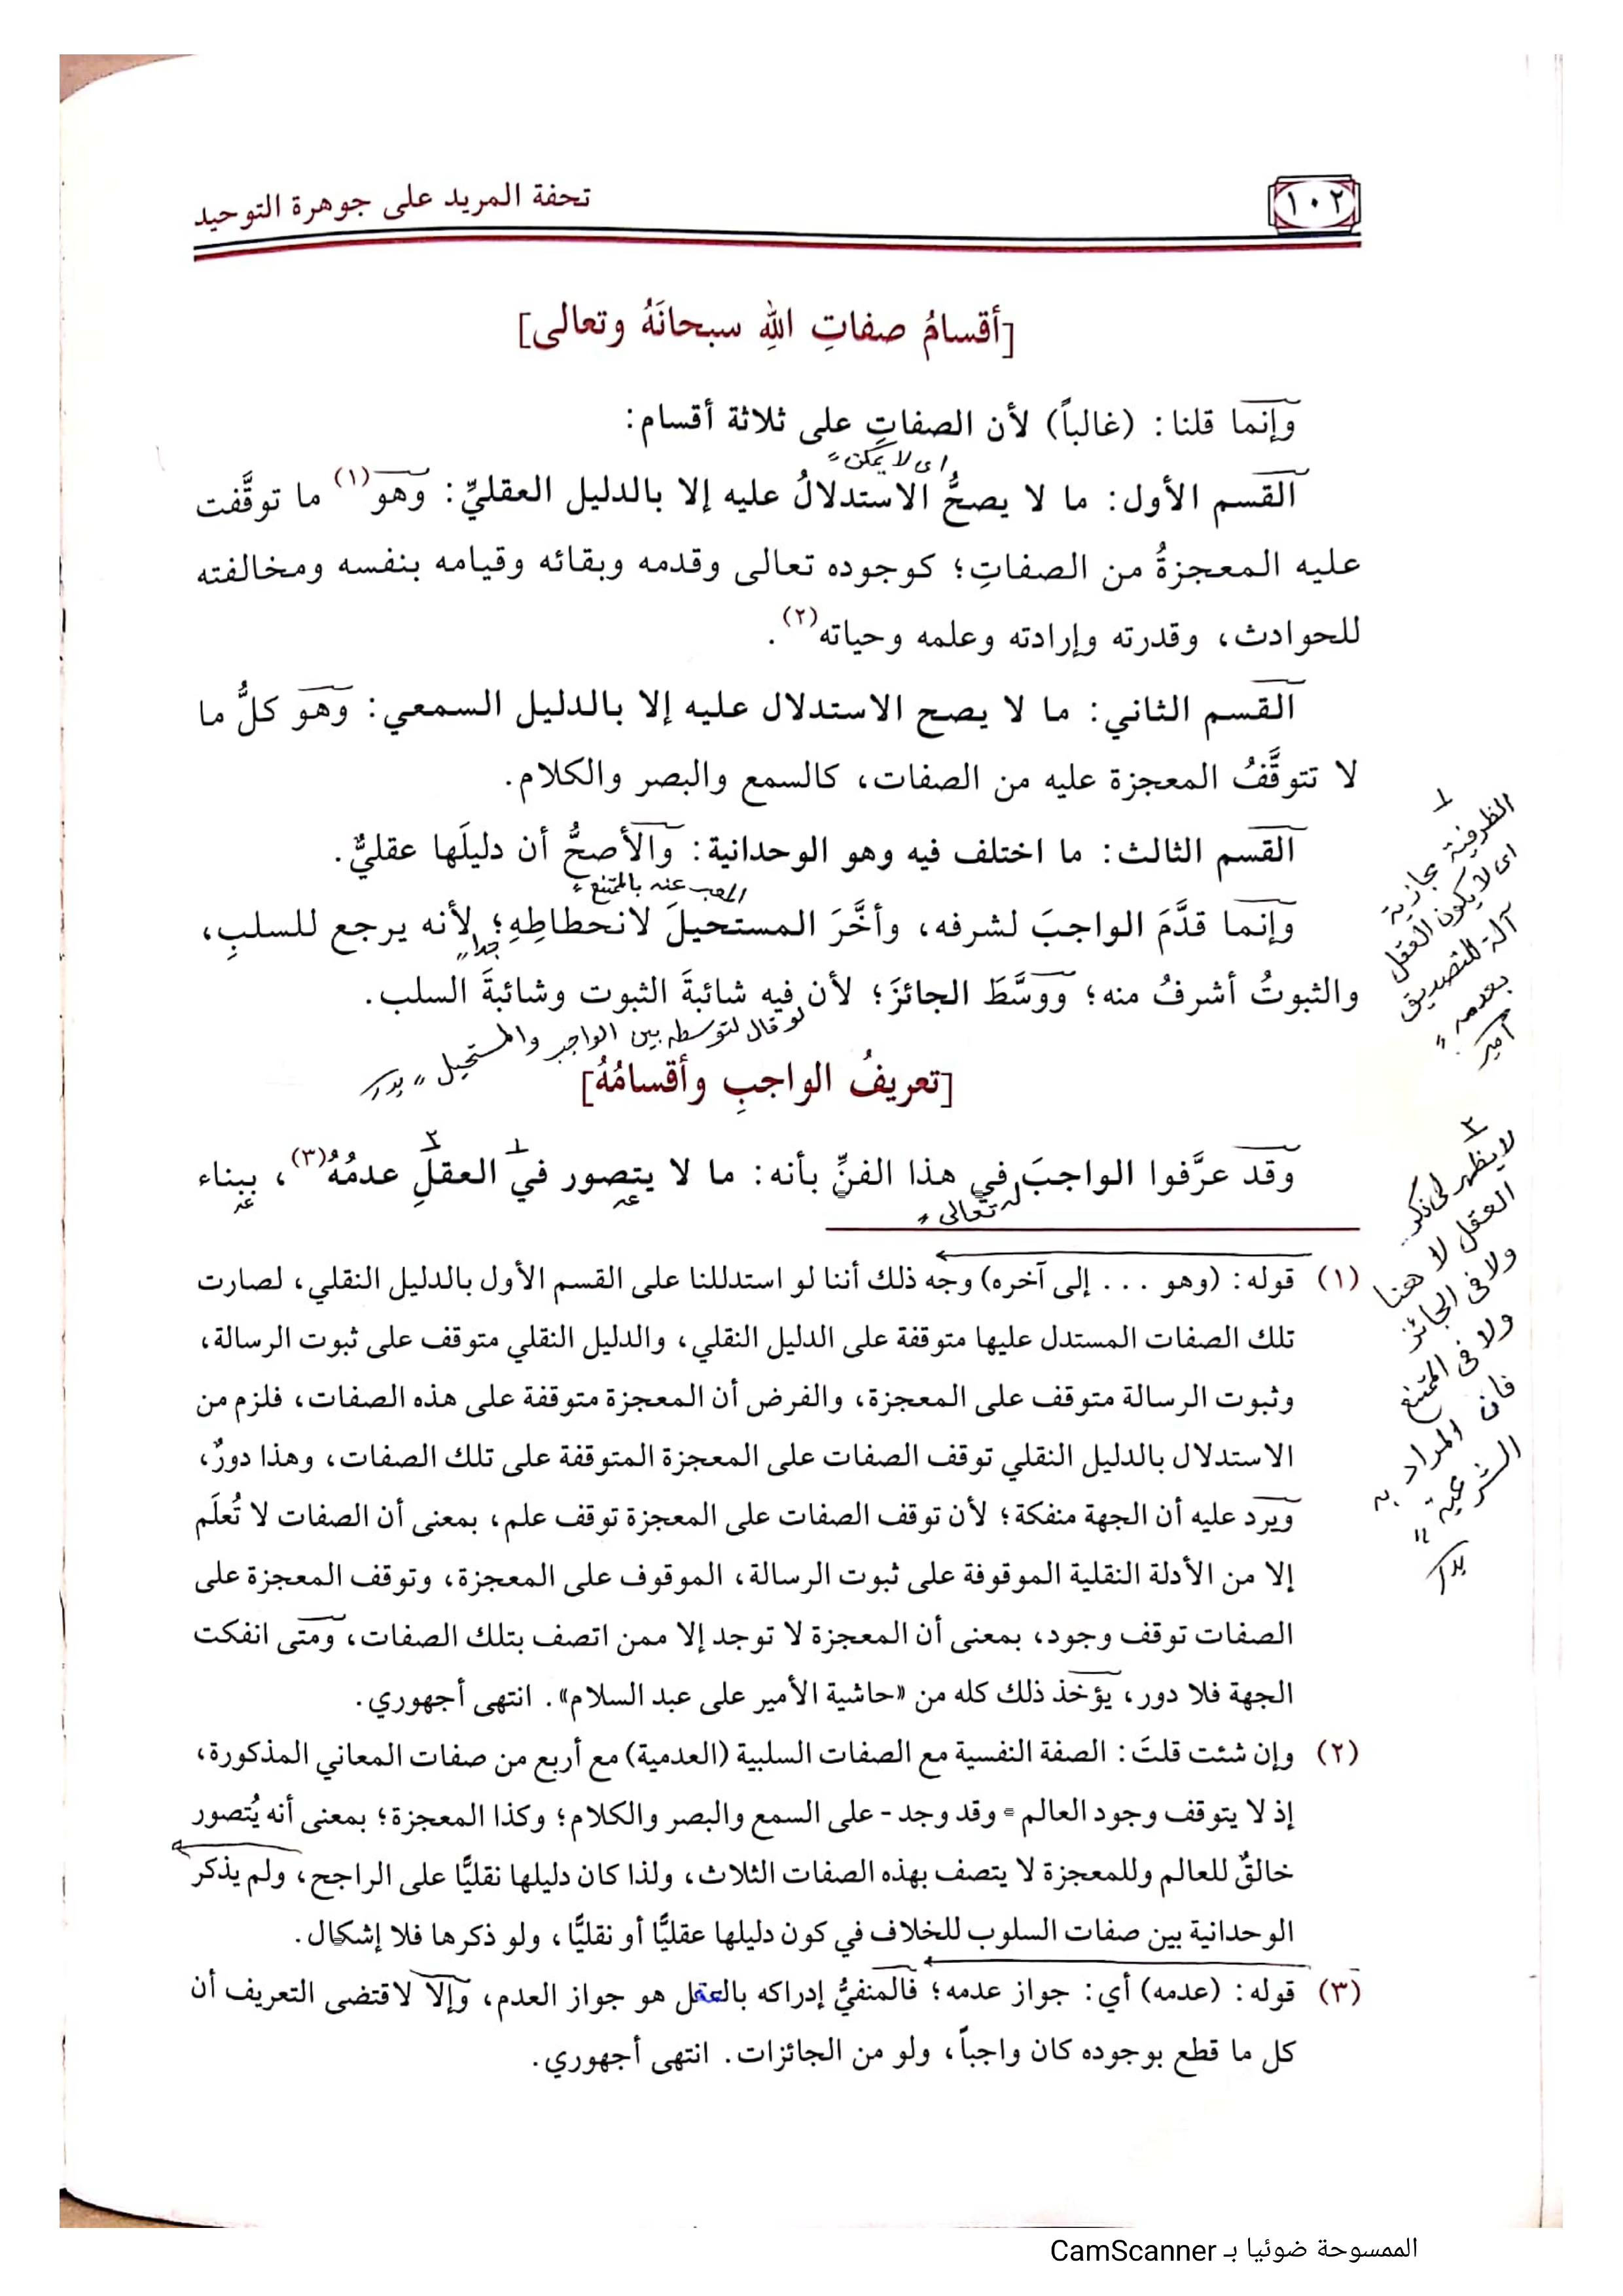 ١٠٢
تحفة المريد على جوهرة التوحيد
[أقسامُ صفاتِ اللهِ سبحانَهُ وتعالى]
وإنما قلنا: (غالباً) لأن الصفاتِ على ثلاثة أقسام:
اى لا يمكن
القسم الأول: ما لا يصحُّ الاستدلالُ عليه إلا بالدليل العقليِّ: وهو(١) ما توقَّفت
عليه المعجزةُ من الصفاتِ؛ كوجوده تعالى وقدمه وبقائه وقيامه بنفسه ومخالفته
للحوادث، وقدرته وإرادته وعلمه وحياته(٢).
القسم الثاني: ما لا يصح الاستدلال عليه إلا بالدليل السمعي: وهو كلُّ ما
لا تتوقَّفُ المعجزة عليه من الصفات، كالسمع والبصر والكلام.
القسم الثالث: ما اختلف فيه وهو الوحدانية: والأصحُّ أن دليلَها عقليٌّ.
عنه بالممتنع
وإنما قدَّمَ الواجبَ لشرفه، وأخَّرَ المستحيلَ لانحطاطِهِ؛ لأنه يرجع للسلبِ،
جدا
والثبوتُ أشرفُ منه؛ ووسَّطَ الجائزَ؛ لأن فيه شائبةَ الثبوت وشائبةَ السلب.
لو قال لتوسطه بين الواجب والمستحيل
[تعريفُ الواجبِ وأقسامُهُ]
وقد عرَّفوا الواجبَ في هذا الفنِّ بأنه: ما لا يتصور في العقلِ عدمُهُ(٣)، ببناء
له تعالى
(١) قوله: (وهو ... إلى آخره) وجه ذلك أننا لو استدللنا على القسم الأول بالدليل النقلي، لصارت
تلك الصفات المستدل عليها متوقفة على الدليل النقلي، والدليل النقلي متوقف على ثبوت الرسالة،
وثبوت الرسالة متوقف على المعجزة، والفرض أن المعجزة متوقفة على هذه الصفات، فلزم من
الاستدلال بالدليل النقلي توقف الصفات على المعجزة المتوقفة على تلك الصفات، وهذا دورٌ،
ويرد عليه أن الجهة منفكة؛ لأن توقف الصفات على المعجزة توقف علم، بمعنى أن الصفات لا تُعلَم
إلا من الأدلة النقلية الموقوفة على ثبوت الرسالة، الموقوف على المعجزة، وتوقف المعجزة على
الصفات توقف وجود، بمعنى أن المعجزة لا توجد إلا ممن اتصف بتلك الصفات، ومتى انفكت
الجهة فلا دور، يؤخذ ذلك كله من «حاشية الأمير على عبد السلام». انتهى أجهوري.
(٢) وإن شئت قلتَ: الصفة النفسية مع الصفات السلبية (العدمية) مع أربع من صفات المعاني المذكورة،
إذ لا يتوقف وجود العالم - وقد وجد - على السمع والبصر والكلام؛ وكذا المعجزة؛ بمعنى أنه يُتصور
خالقٌ للعالم وللمعجزة لا يتصف بهذه الصفات الثلاث، ولذا كان دليلها نقليًّا على الراجح، ولم يذكر
الوحدانية بين صفات السلوب للخلاف في كون دليلها عقليًّا أو نقليًّا، ولو ذكرها فلا إشكال.
(٣) قوله: (عدمه) أي: جواز عدمه؛ فالمنفيُّ إدراكه بالعقل هو جواز العدم، وإلا لاقتضى التعريف أن
كل ما قطع بوجوده كان واجباً، ولو من الجائزات. انتهى أجهوري.
١
الظرفية مجازية
اى لا يكون العقل
آلة للتصديق
بعدمه
امير
٢
لا يظهر لى ذكر
العقل لا هنا
ولا فى الجائز
ولا فى الممتنع
فان المراد به
الشرعية
الممسوحة ضوئيا بـ CamScanner